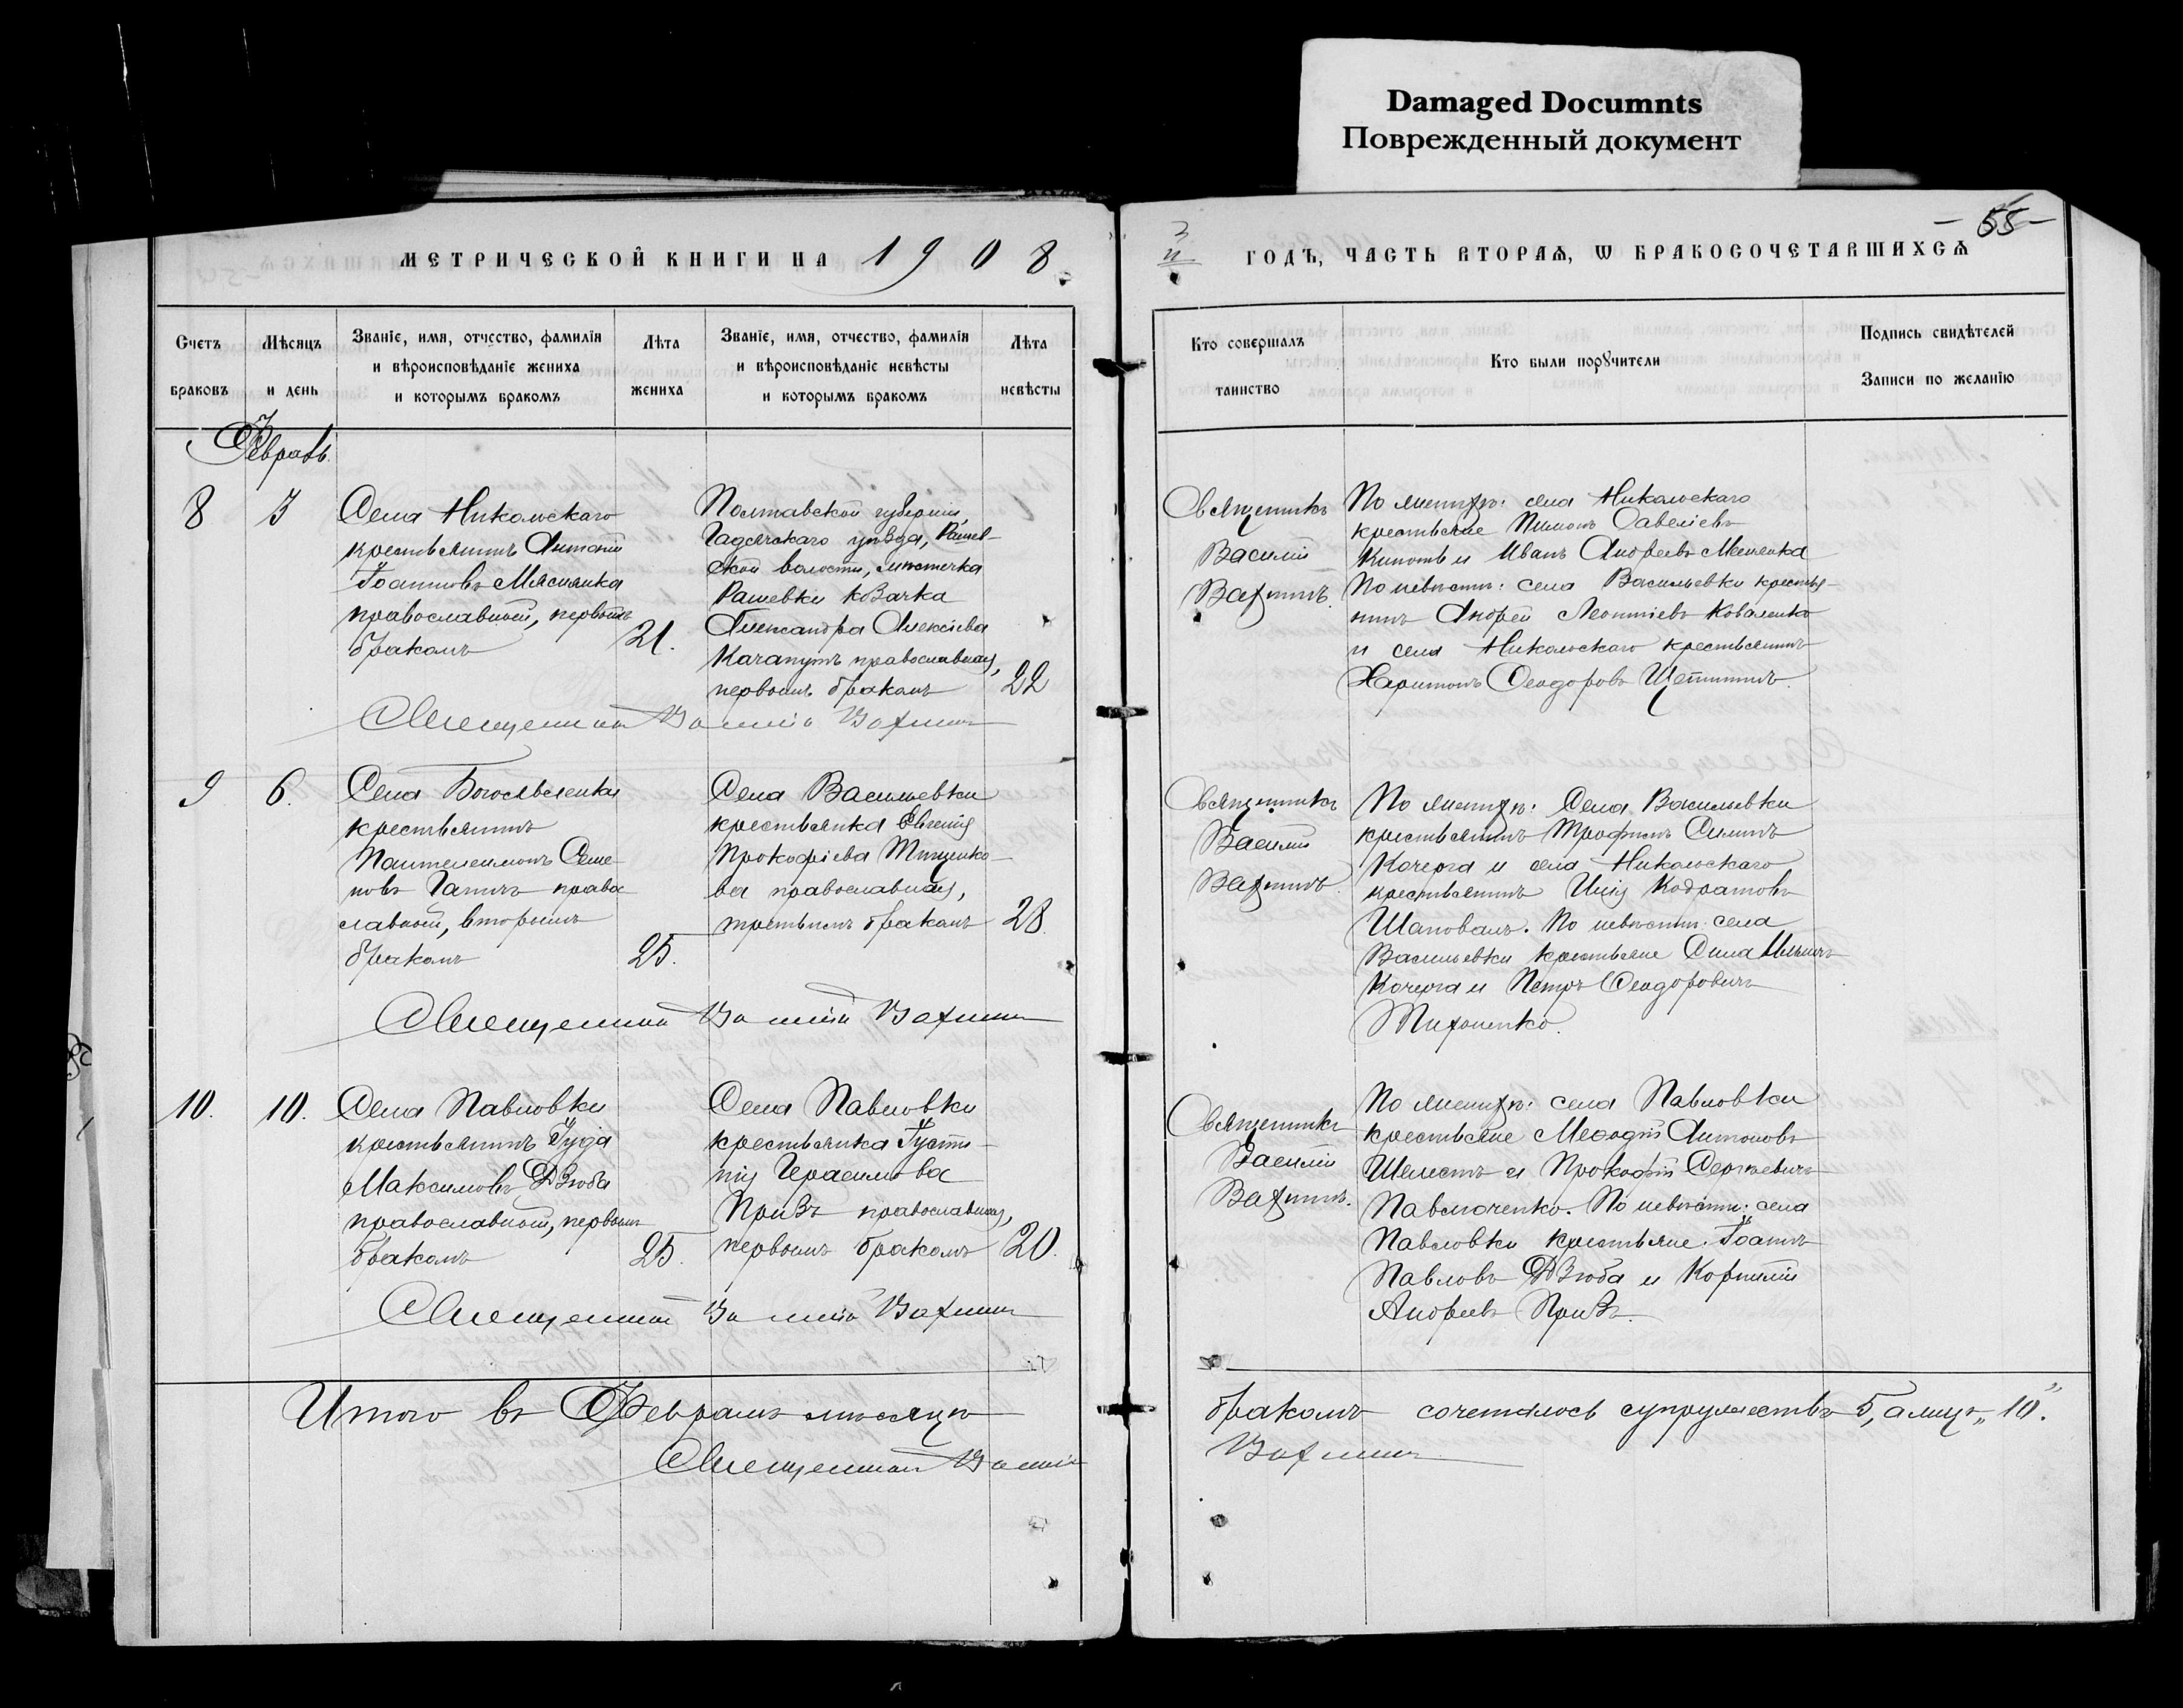 Damaged Documnts
Поврежденный документ
МЕТРИЧЕСКОЙ КНИГИ НА 1908
ГОДЪ, ЧАСТЬ ВТОРАЯ, Ѡ БРАКОСОЧЕТАВШИХСЯ
-55-
Счетъ браковъ
Мѣсяцъ и день
Званіе, имя, отчество, фамилія
и вѣроисповѣданіе жениха
и которымъ бракомъ
Лѣта жениха
Званіе, имя, отчество, фамилія
и вѣроисповѣданіе невѣсты
и которымъ бракомъ
Лѣта невѣсты
Кто совершалъ таинство
Кто были порꙋчители
Подпись свидѣтелей
Записи по желанію
Февраль
8
3
Села Никольскаго
крестьянинъ Антоній
Іоанновъ Мясянка
православный, первымъ
бракомъ
21.
Полтавской губерніи,
Гадячскаго уѣзда, Рашев-
ской волости, мѣстечка
Рашевки козачка
Александра Алексіева
православная,
первымъ бракомъ
22
Священникъ
Василій
Вахнинъ.
По женихѣ: села Никольскаго
крестьяне Пименъ Савеліевъ
и Иванъ Андреевъ
По невѣстѣ: села Васильевки крестья-
нинъ Андрей Леонтіевъ Коваленко
и села Никольскаго крестьянинъ
Харитонъ Ѳеодоровъ Щетининъ.
Священникъ Василій Вахнинъ
9
6.
Села Богоявленки
крестьянинъ
Пантелеимонъ Семе-
новъ право
славный, вторымъ
бракомъ
25.
Села Васильевки
крестьянка Евгенія
Прокофіева Тищенко-
ва православная,
третьимъ бракомъ
28.
Священникъ
Василій
Вахнинъ.
По женихѣ: Села Васильевки
крестьянинъ Трофимъ Силинъ
Кочерга и села Никольскаго
крестьянинъ Илія Кодратовъ
Шаповалъ. По невѣстѣ: села
Васильевки крестьяне Сила Ильичъ
Кочерга и Петръ Ѳеодоровичъ
Тихоненко.
Священникъ Василій Вахнинъ
10.
10.
Села Павловки
крестьянинъ Іуда
Максимовъ Дзюба
православный, первымъ
бракомъ
25.
Села Павловки
крестьянка Іусти-
нія Герасимова
Призъ православная,
первымъ бракомъ
20.
Священникъ
Василій
Вахнинъ.
По женихѣ: села Павловки
крестьяне Меѳодій Антоновъ
Шелестъ и Прокофій Сергѣевичъ
Павлюченко. По невѣстѣ: села
Павловки крестьяне Іоаннъ
Павловъ Дзюба и Корнилій
Андреевъ Призъ.
Священникъ Василій Вахнинъ
Итого въ Февралѣ мѣсяцѣ
бракомъ сочеталось супружествъ 5, а лицъ „10".
Священникъ Василій
Вахнинъ